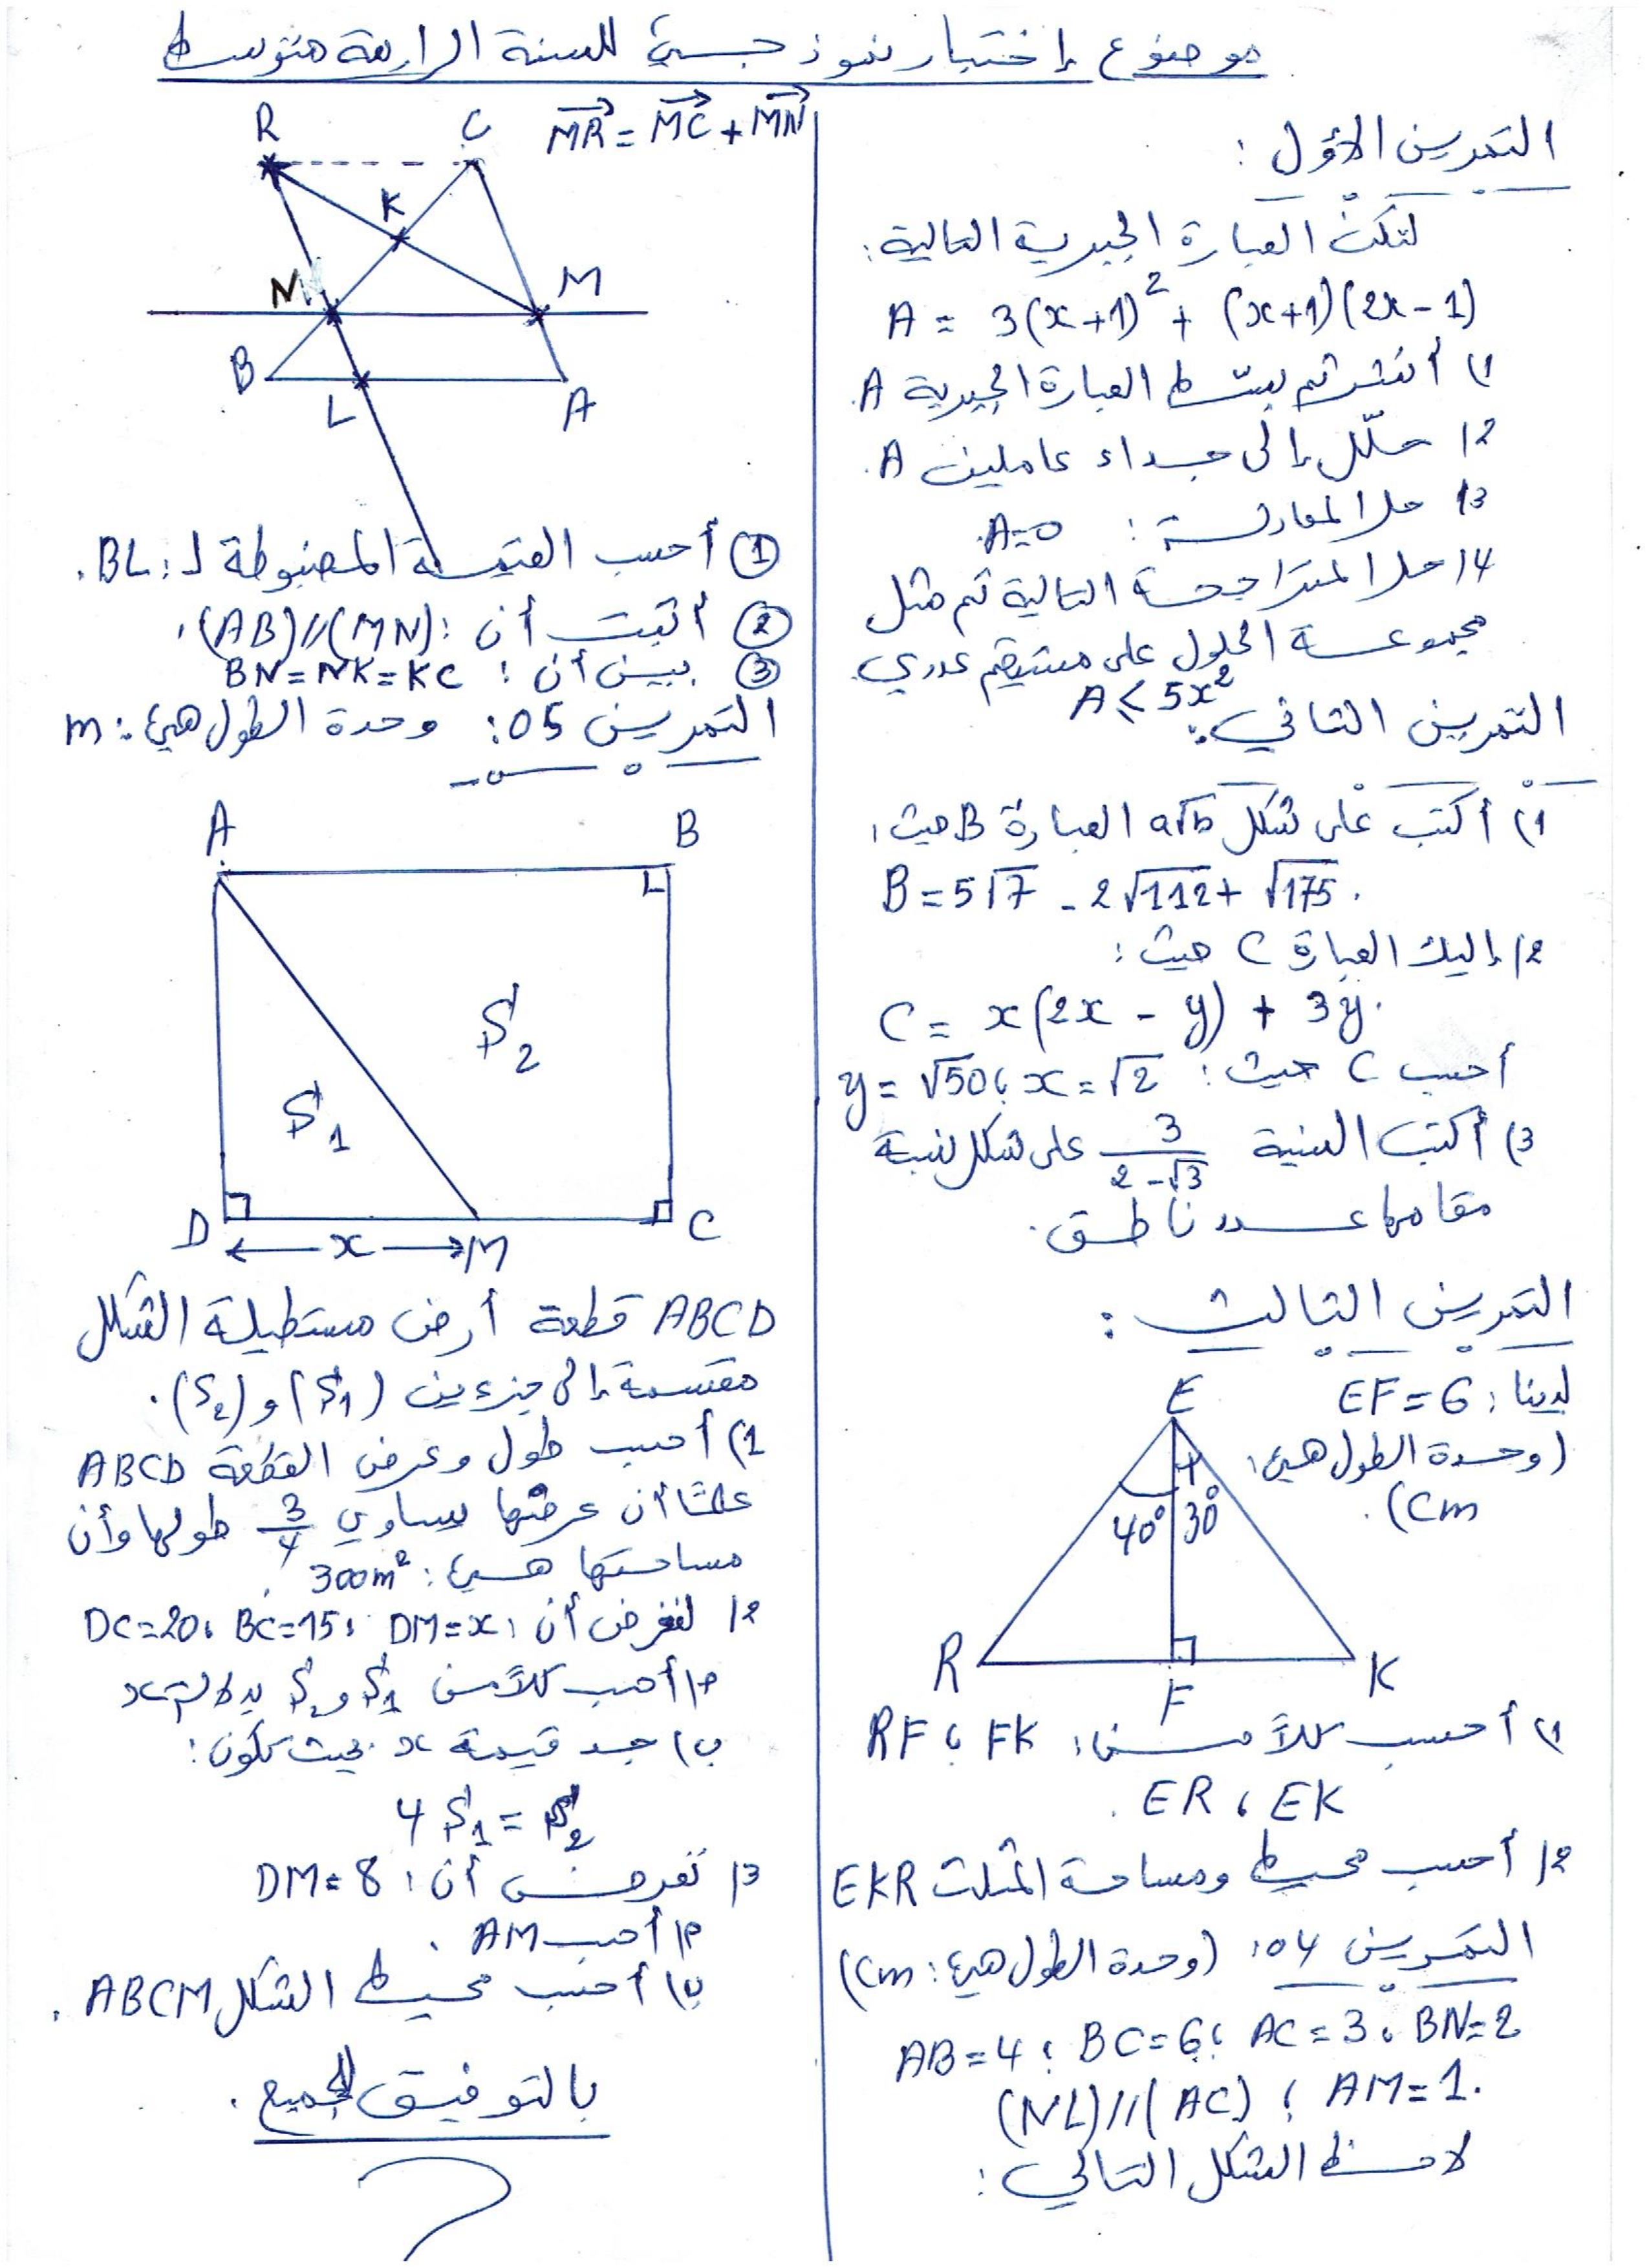 موضوع إختبار نموذجي للسنة الرابعة متوسط
التمرين الأول :
لتكن العبارة الجبرية التالية :
A = 3(x+1)² + (x+1)(2x-1)
1) أنشر ثم بسّط العبارة الجبرية A.
2/ حلّل إلى جداء عاملين A.
3/ حل المعادلة : A=0.
4/ حل المتراجحة التالية ثم مثل
مجموعة الحلول على مستقيم عددي
A ⩽ 5x²
التمرين الثاني :
1) أكتب على شكل a√b العبارة B حيث :
B = 5√7 - 2√112 + √175.
2/ إليك العبارة C حيث :
C = x(2x - y) + 3y.
أحسب C حيث : x = √2 ، y = √50
3) أكتب النسبة 3/(2-√3) على شكل نسبة
مقامها عدد ناطق.
التمرين الثالث :
لدينا : EF = 6
(وحدة الطول هي :
cm).
E
40° 30°
R F K
1) أحسب كلاً من : FK ، RF
ER ، EK .
2/ أحسب محيط ومساحة المثلث EKR
التمرين 04 : (وحدة الطول هي : cm)
AB=4 ؛ BC=6 ؛ AC=3 ، BN=2
(NL)//(AC) ؛ AM=1.
لاحظ الشكل التالي :
R C MR = MC + MN
K
N M
B L A
① أحسب القيمة المضبوطة لـ : BL .
② أثبت أن : (AB)//(MN) .
③ بين أن : BN = NK = KC
التمرين 05 : وحدة الطول هي : m
A B
S2
S1
D x M C
ABCD قطعة أرض مستطيلة الشكل
مقسمة إلى جزءين (S1) و (S2) .
1) أحسب طول وعرض القطعة ABCD
علما أن عرضها يساوي 3/4 طولها وأن
مساحتها هي : 300m² .
2/ لنفرض أن : DM=x ، BC=15 ، DC=20
أ) أحسب كلاً من S1 و S2 بدلالة x
ب) جد قيمة x بحيث تكون :
4 S1 = S2
3/ نفرض أن : DM=8
أ) أحسب AM .
ب) أحسب محيط الشكل ABCM .
بالتوفيق للجميع .